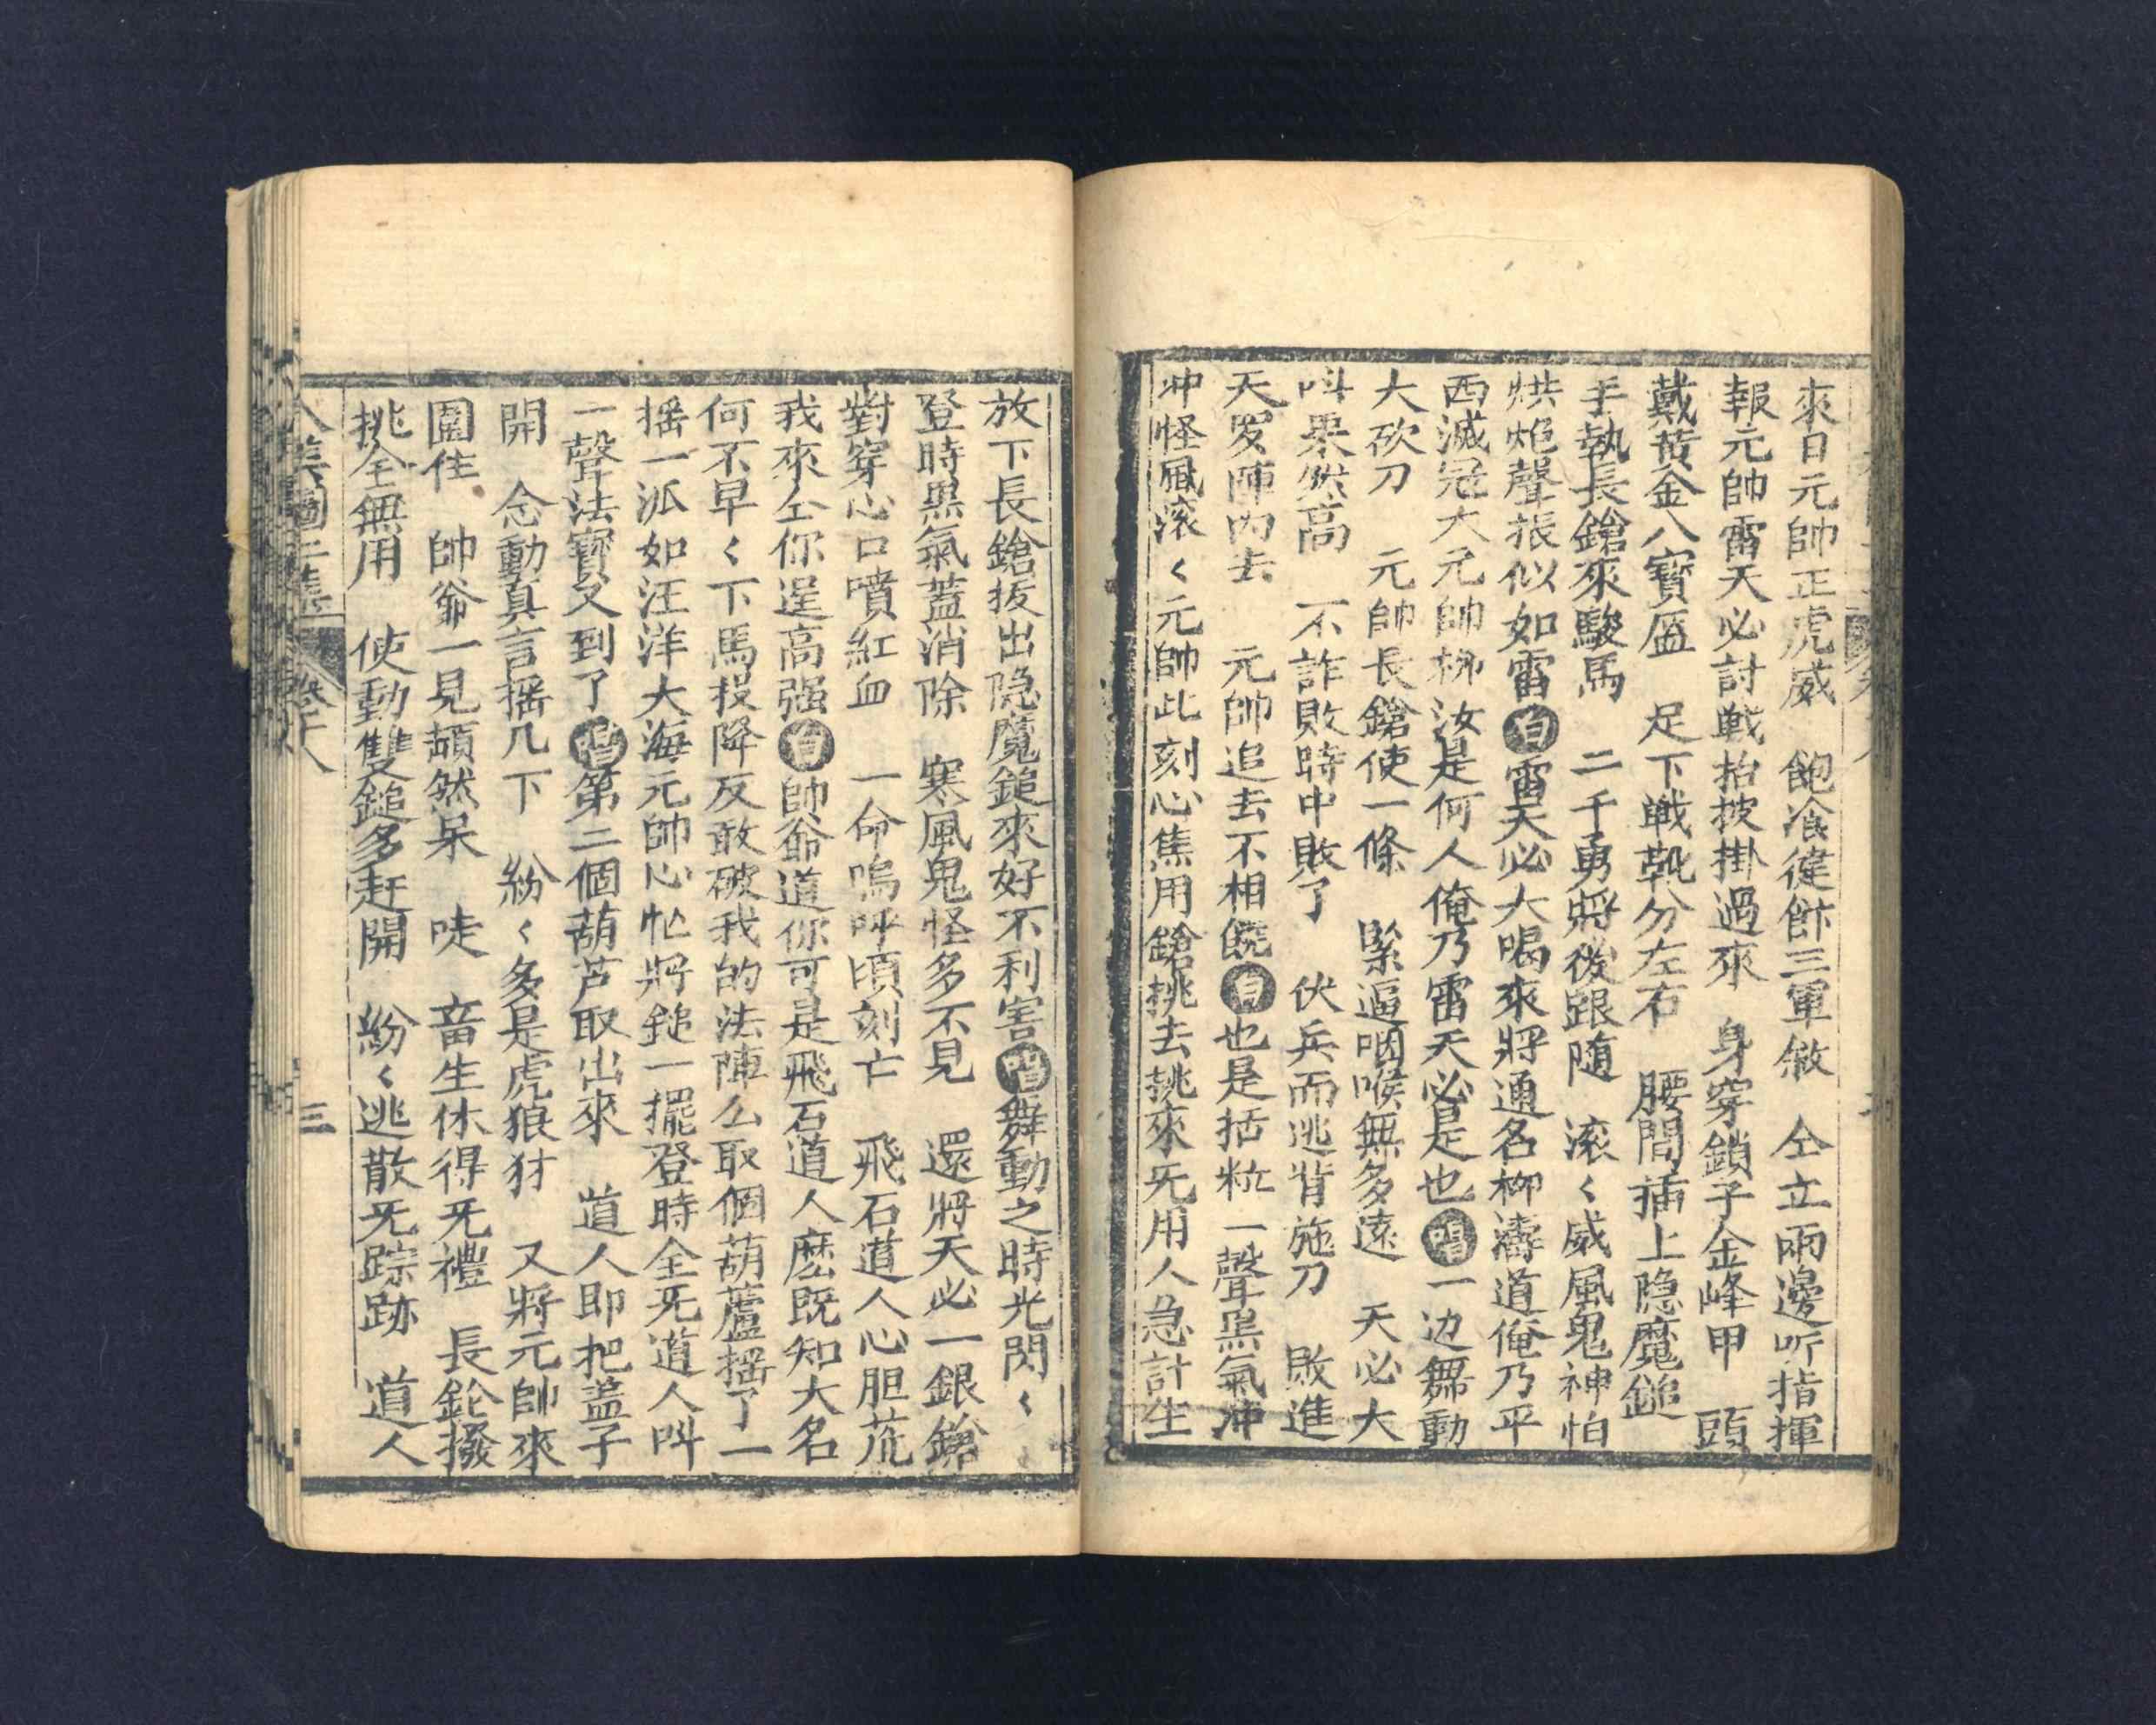 來日元帥正虎威　飽飡從飾三軍做　仝立兩邊听指揮
報元帥雷天必討戦抬披掛過來　身穿鎖子金峰甲　頭
戴黃金八寶盔　足下戦靴分左右　腰間插上隐魔鎚
手執長鎗來駿馬　二千勇將後跟随　滚〱威風鬼神怕
烘炮聲振似如雷白雷天必大喝來將通名柳濤道俺乃平
西滅冦大元帥柳汝是何人俺乃雷天必是也唱一边舞動
大砍刀　元帥長鎗使一條　緊逼咽喉無多遠　天必大
呌果然高　不詐敗時中敗了　伏兵而逃背施刀　敗進
天罗陣内去　元帥追去不相饒白也是括粒一聲黒氣冲
冲怪風滚〱元帥此刻心焦用鎗挑去挑來旡用人急計生
放下長鎗拔出隐魔鎚來好不利害唱舞動之時光閃〱
登時黒氣蓋消除　寒風鬼怪多不見　還將天必一銀鎗
對穿心口噴紅血　一命嗚呼頃刻亡　飛石道人心胆荒
我來仝你逞高强白帥爺道你可是飛石道人麽既知大名
何不早〱下馬投降反敢破我的法陣么取個葫蘆揺了一
揺一派如汪洋大海元帥心忙將鎚一擺登時全旡道人呌
一聲法寳又到了唱第二個葫芦取出來　道人即把盖子
開　念動真言揺几下　紛〱多是虎狼犲　又將元帥來
圍住　帥爺一見頓然呆　唗　畜生休得旡禮　長鎗撥
挑全無用　使動雙鎚多赶開　紛〱逃散旡踪跡　道人
八美圖二集　卷十八　三